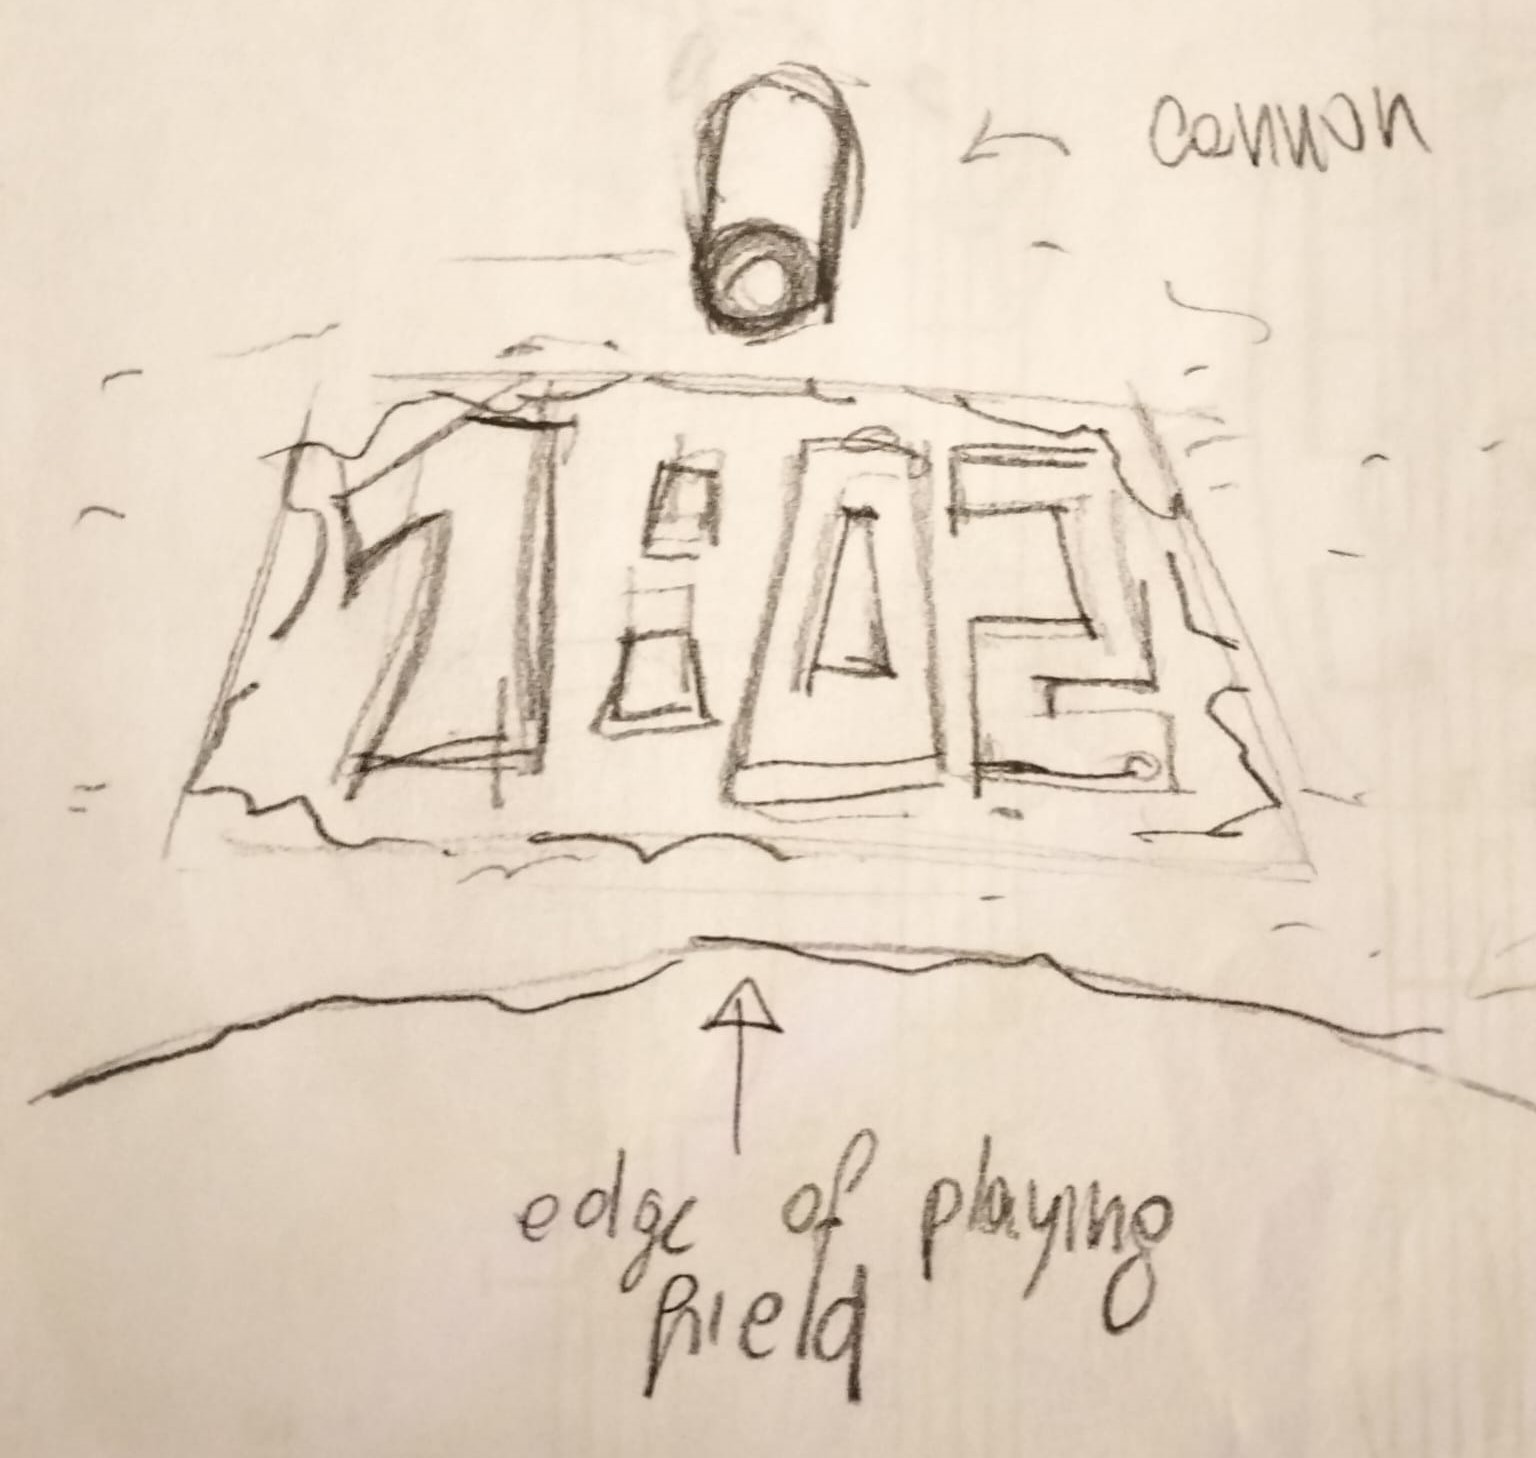 cannon
1:02
edge of playing
field